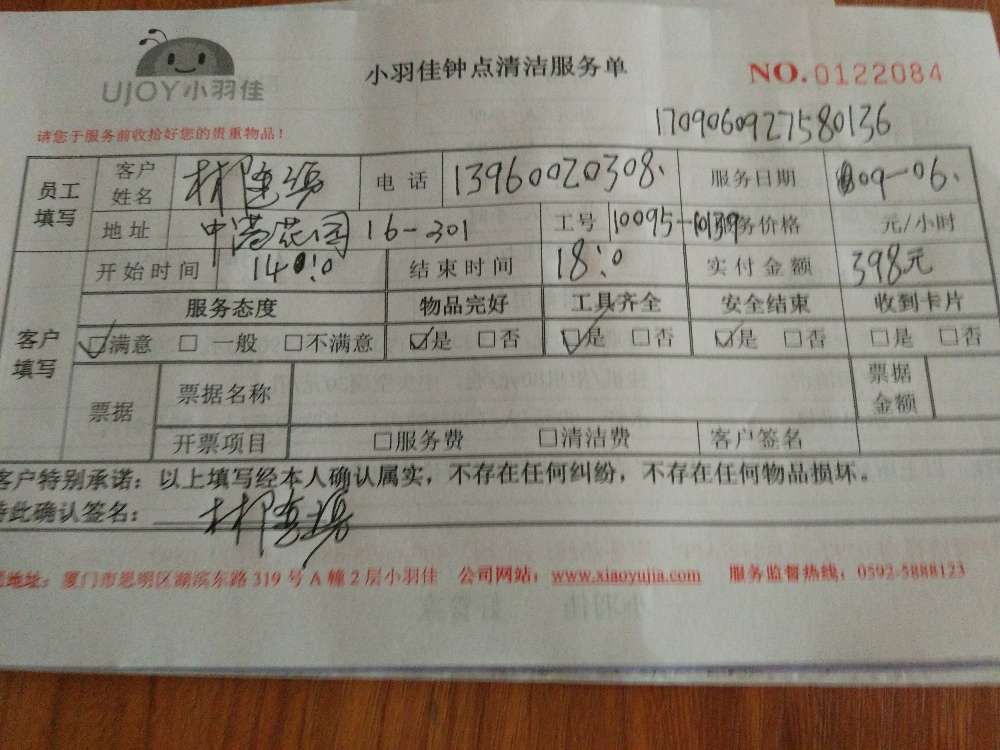 UJOY小羽佳
小羽佳钟点清洁服务单
NO.0122084
请您于服务前收拾好您的贵重物品！
1709060927580136
员工填写 客户姓名 林 电话 13960020308. 服务日期 09-06.
地址 中 花园 16-301 工号 10095-10139 服务价格 元/小时
客户填写 开始时间 14:0 结束时间 18:0 实付金额 398元
服务态度 物品完好 工具齐全 安全结束 收到卡片
☑满意 □ 一般 □不满意 ☑是 □否 ☑是 □否 ☑是 □否 □是 □否
票据 票据名称 票据金额
开票项目 □服务费 □清洁费 客户签名
客户特别承诺：以上填写经本人确认属实，不存在任何纠纷，不存在任何物品损坏。
特此确认签名： 林
地址：厦门市思明区湖滨东路 319 号 A 幢 2 层小羽佳 公司网站：www.xiaoyujia.com 服务监督热线：0592-5888123